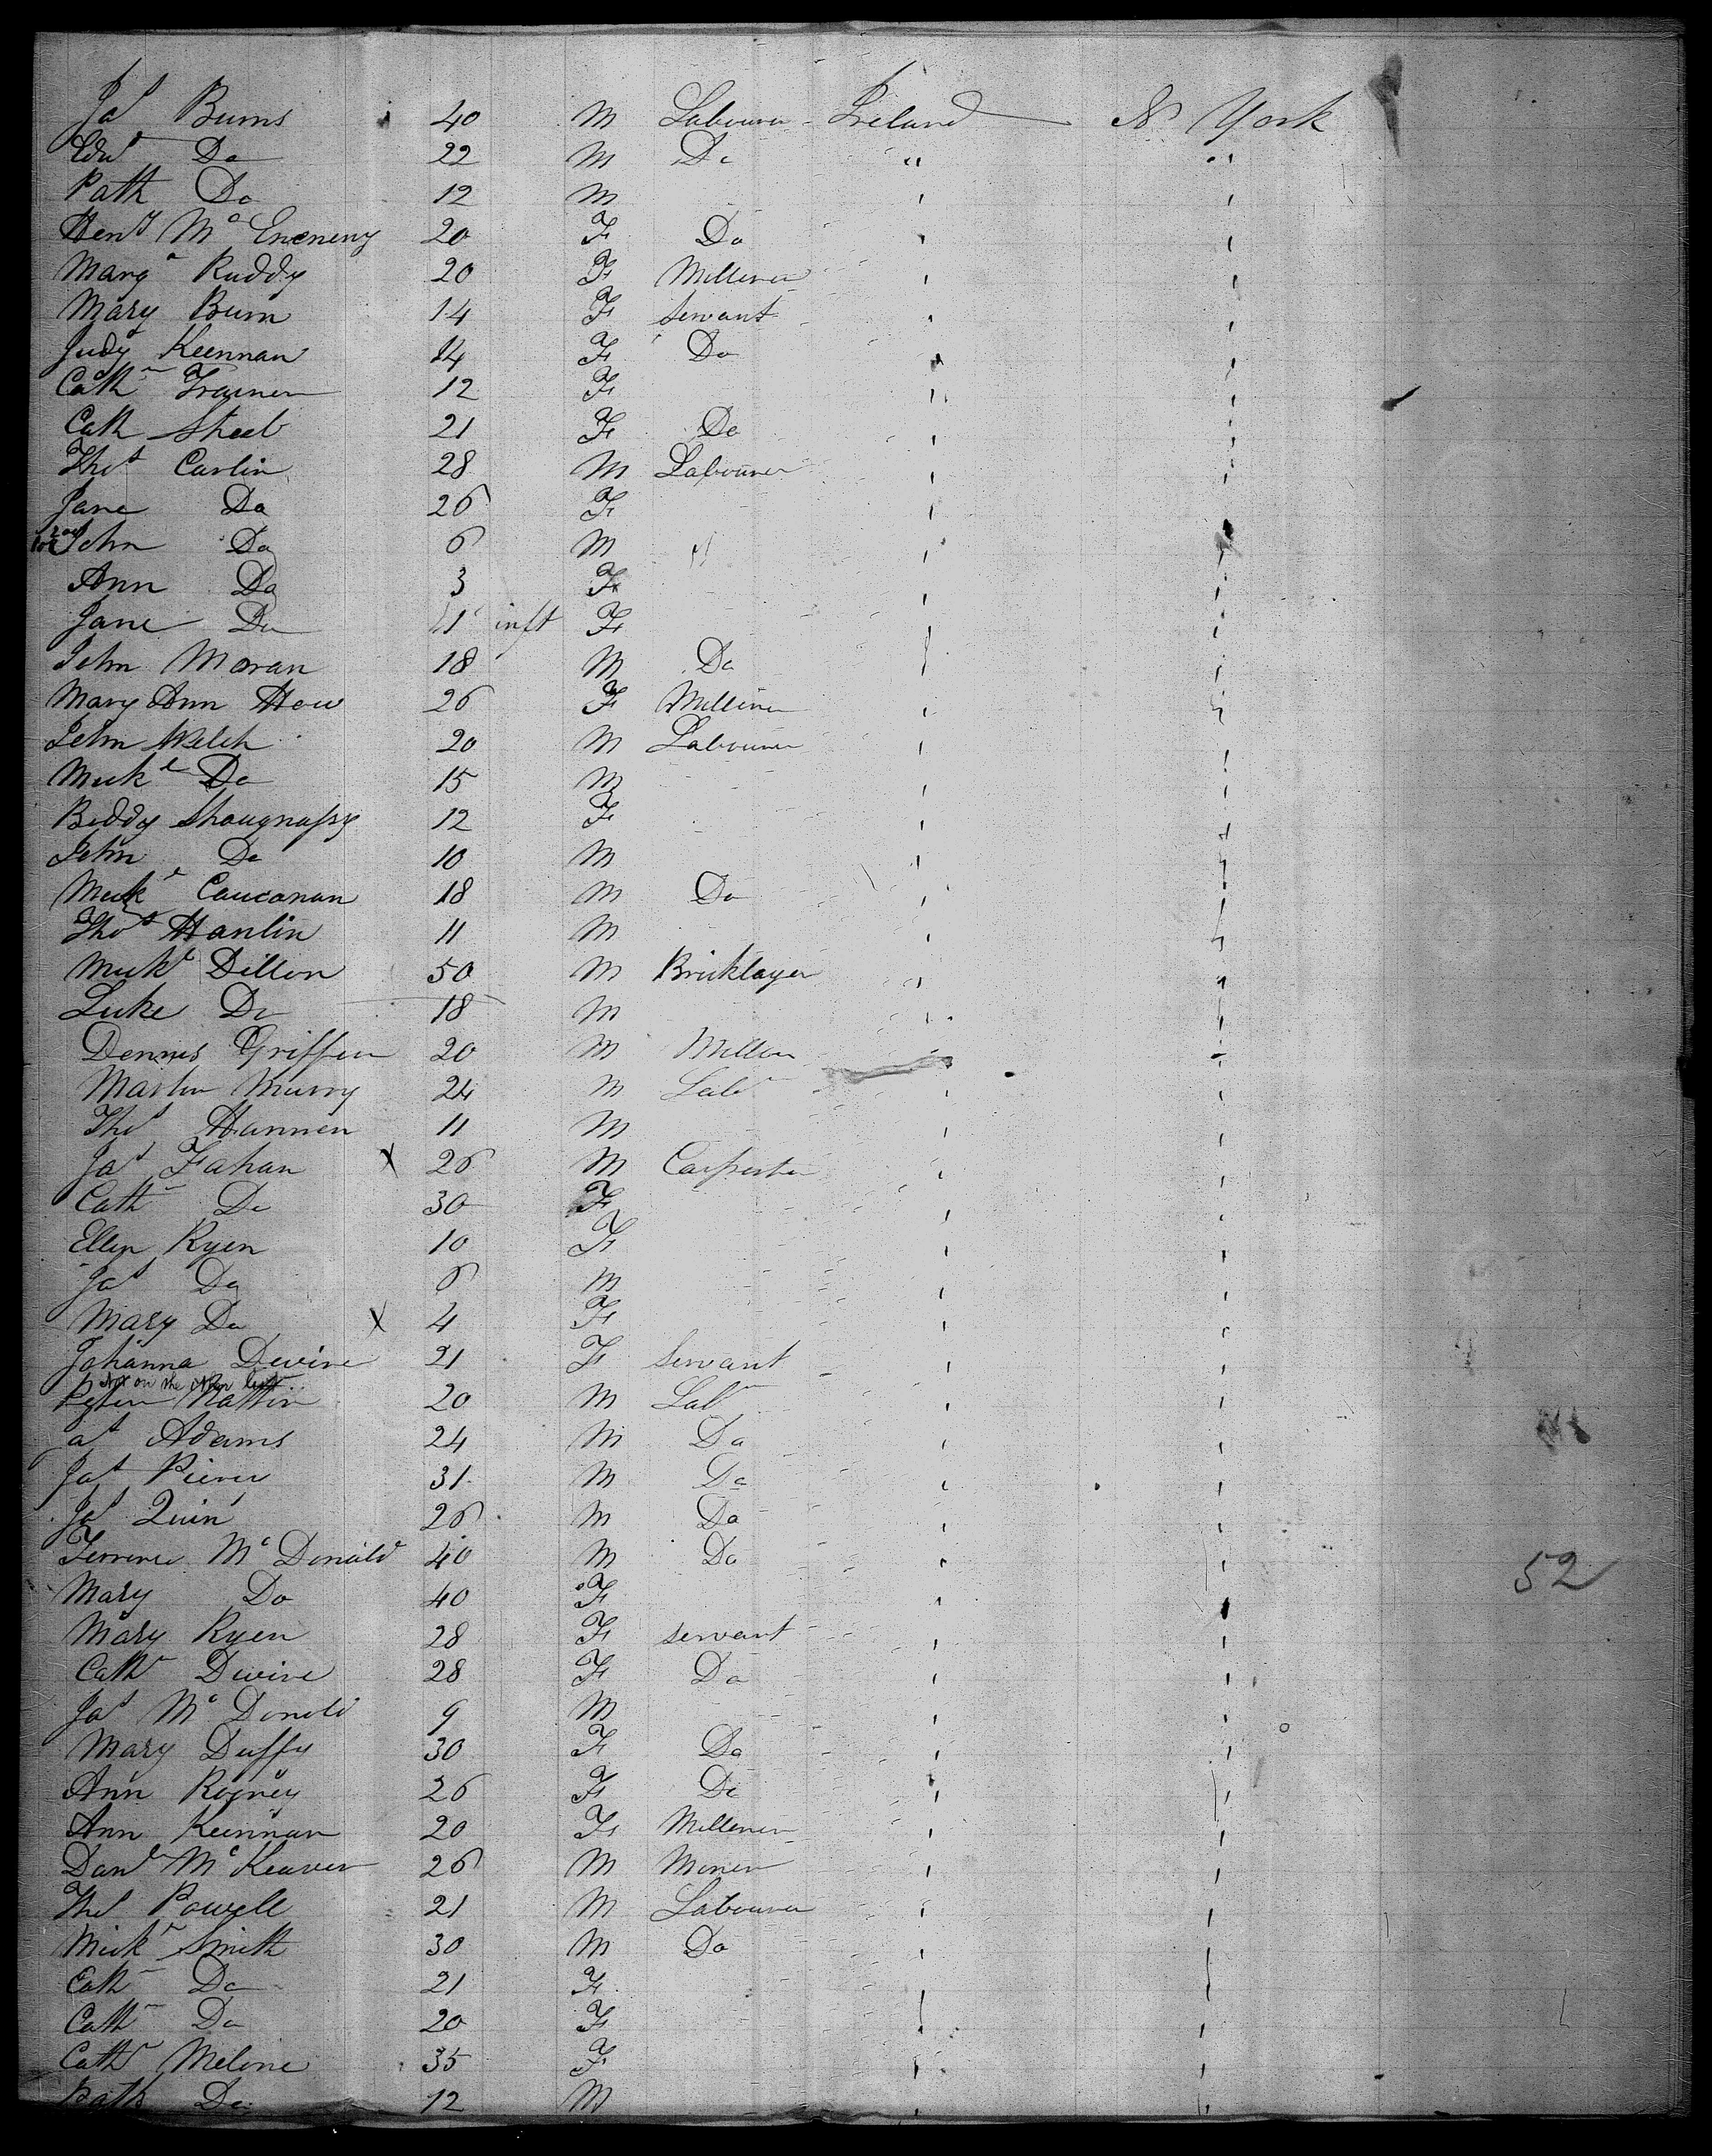 Jas Burns 40 M Labourer Ireland N York
Edwd Do 22 M Do " "
Patk Do 12 M
Heny Mc Eneneny 20 F Do
Marg Ruddy 20 F Milliner
Mary Burn 14 F Servant
Judy Keennan 14 F Do
Cath Trainer 12 F
Cath Sheeb 21 F Do
Thos Carlin 28 M Labourer
Jane Do 26 F
John Do 6 M
Ann Do 3 F
Jane Do 1 inft F
John Moran 18 M Do
Mary Ann How 26 F Milliner
John Welch 20 M Labourer
Mickl Do 15 M
Biddy Shaugnassy 12 F
John Do 10 M
Mickl Cauconan 18 M Do
Thos Hanlin 11 M
Mickl Dillon 50 M Bricklayer
Luke Do 18 M
Dennis Griffen 20 M
Martin Murry 24 M Labr
Thos Hannen 11 M
Jas Fahan X 26 M Carpenter
Cath Do 30 F
Ellen Ryen 10 F
Jas Do 6 M
Mary Do X 4 F
Johanna Devine 21 F Servant
Not on the other list
20 M Labr
Adams 24 M Do
Jas Pierce 31 M Do
Jas Quin 26 M Do
Terrence Mc Donald 40 M Do 52
Mary Do 40 F
Mary Ryen 28 F Servant
Cath Devine 28 F Do
Jas Mc Donald 9 M
Mary Duffy 30 F Do
Ann Rogney 26 F Do
Ann Keennan 20 F Milliner
Danl Mc Keaver 26 M Miner
Thos Powell 21 M Labourer
Mickl Smith 30 M Do
Cath Do 21 F
Cath Do 20 F
Cath Melone 35 F
Patk Do 12 M